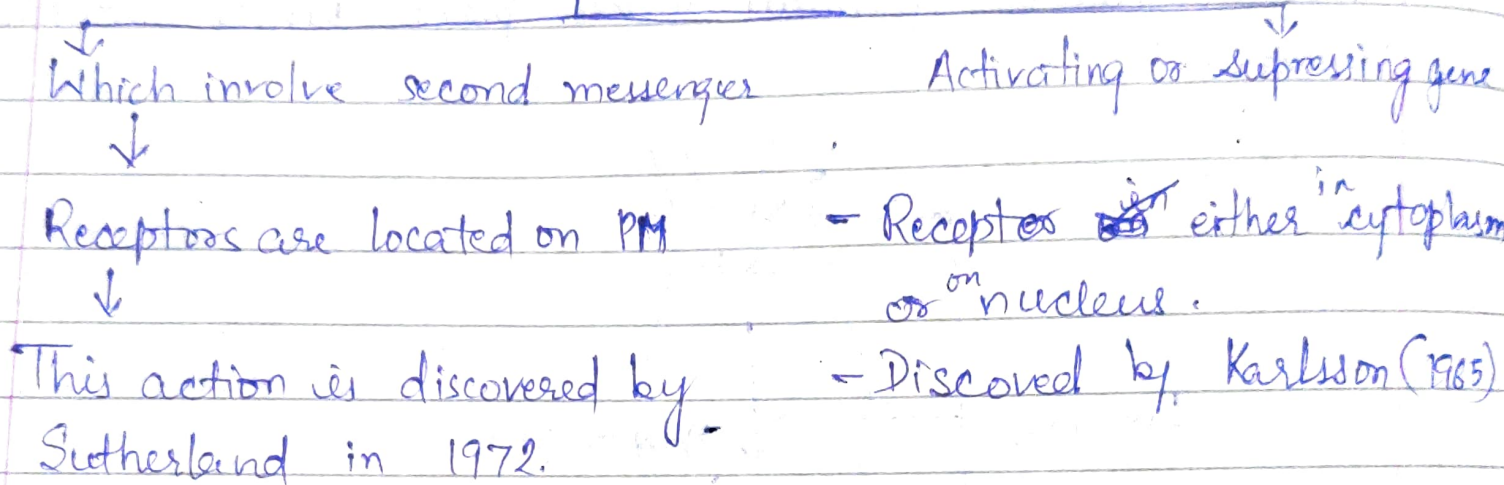 Which involve second messenger
Receptors are located on PM
This action is discovered by
Sutherland in 1972.
Activating or supressing gene
- Receptor either in cytoplasm
or on nucleus.
- Discoved by Karlsson (1965)